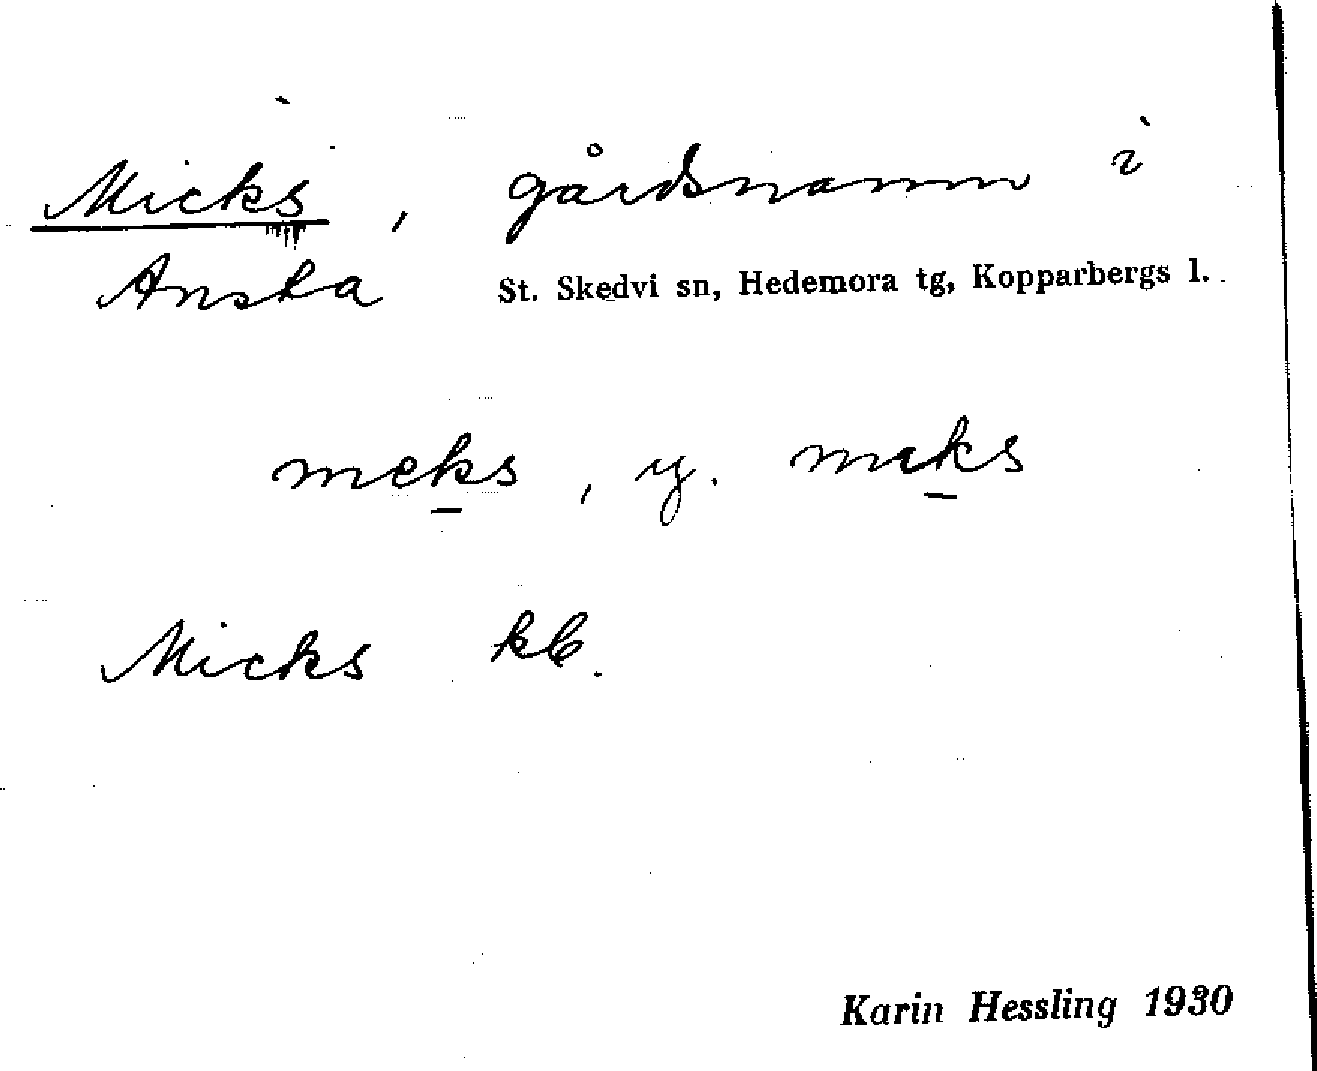 Micks, gårdsnamn i
Ansta St. Skedvi sn, Hedemora tg, Kopparbergs l.
meks, y. maks
Micks kb.
Karin Hessling 1930